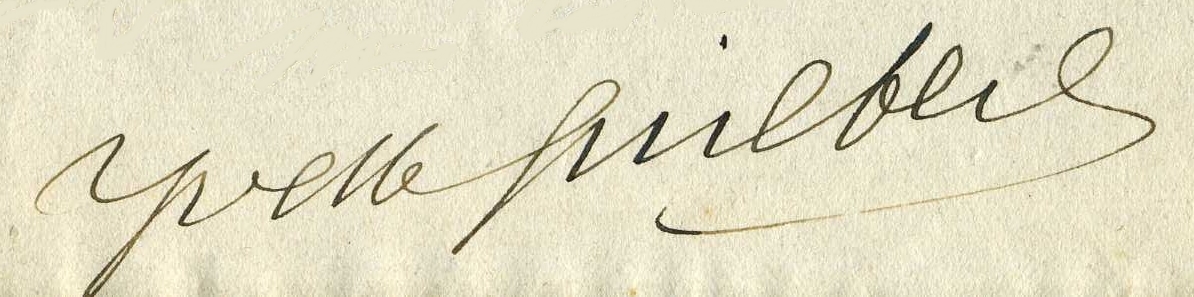 Yvette Guilbert